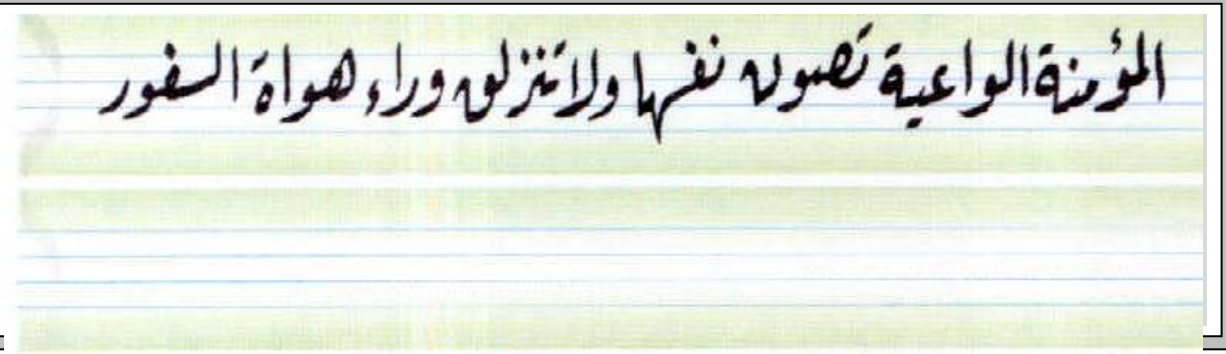 المؤمنة الواعية تصون نفسها ولا تنزلق وراء هواة السفور